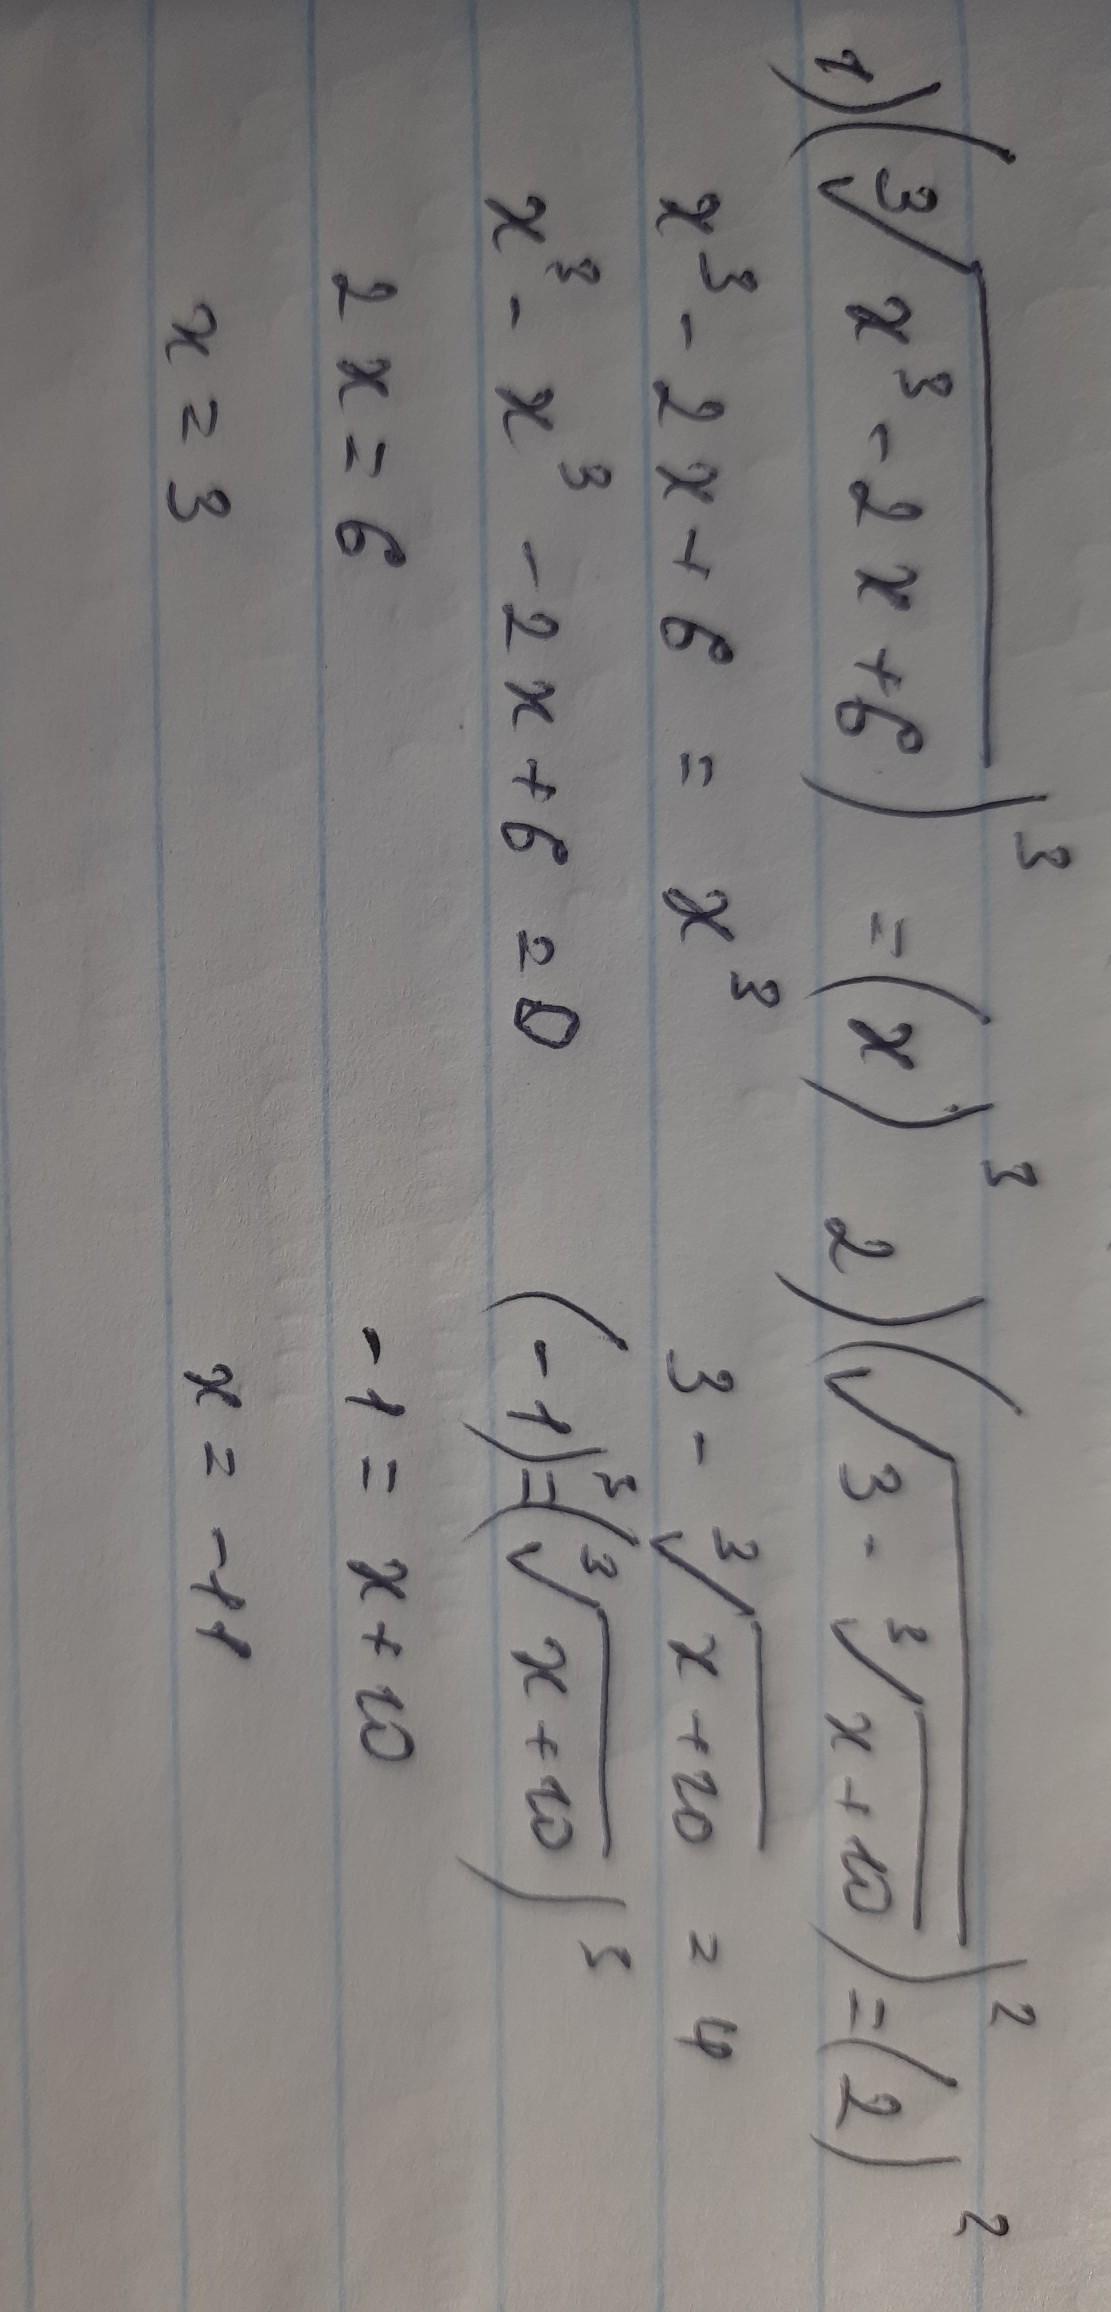 1) (∛(x³ - 2x + 6))³ = (x)³
x³ - 2x + 6 = x³
x³ - x³ - 2x + 6 = 0
2x = 6
x = 3
2) (√(3 - ∛(x + 10)))² = (2)²
3 - ∛(x + 10) = 4
(-1)³ = (∛(x + 10))³
-1 = x + 10
x = -11